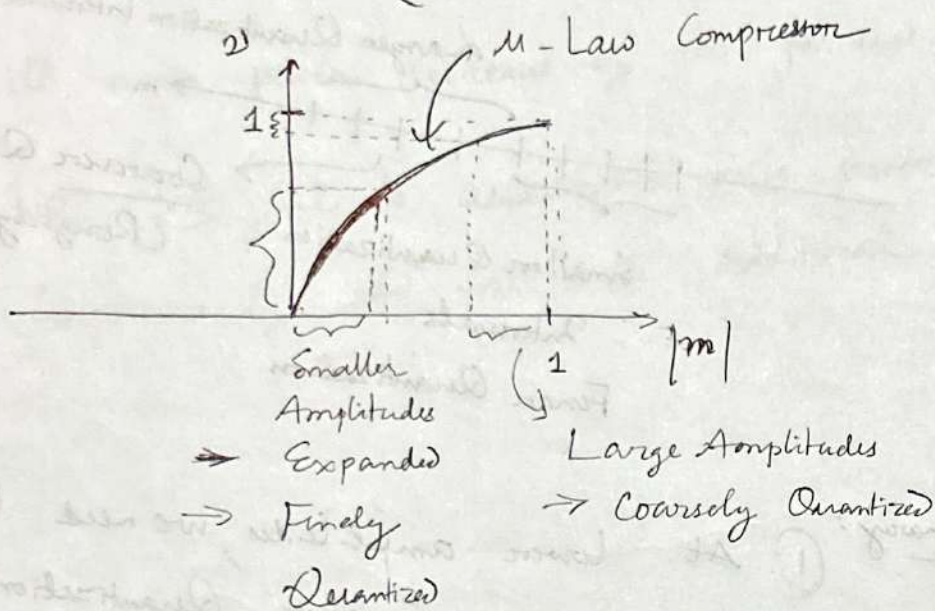 μ-Law Compressor
1
|m|
1
Smaller
Amplitudes
→ Expanded
→ Finely
Quantized
Large Amplitudes
→ Coarsely Quantized